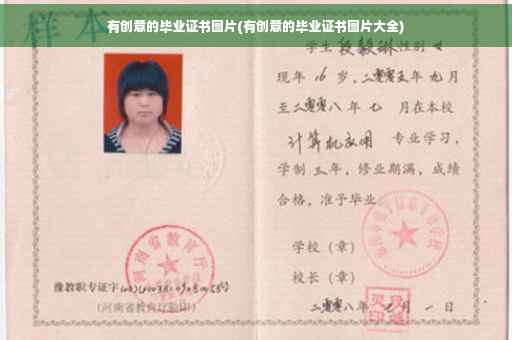 有创意的毕业证书图片(有创意的毕业证书图片大全)
样本
学生段毅琳性别女
现年16岁，二零零五年九月
至二零零八年七月在本校
计算机应用 专业学习，
学制三年，修业期满，成绩
合格，准予毕业
学校（章）
校长（章）
二零零八年七月一日
河南省教育厅
豫教职专证字
(河南省教育厅验印)